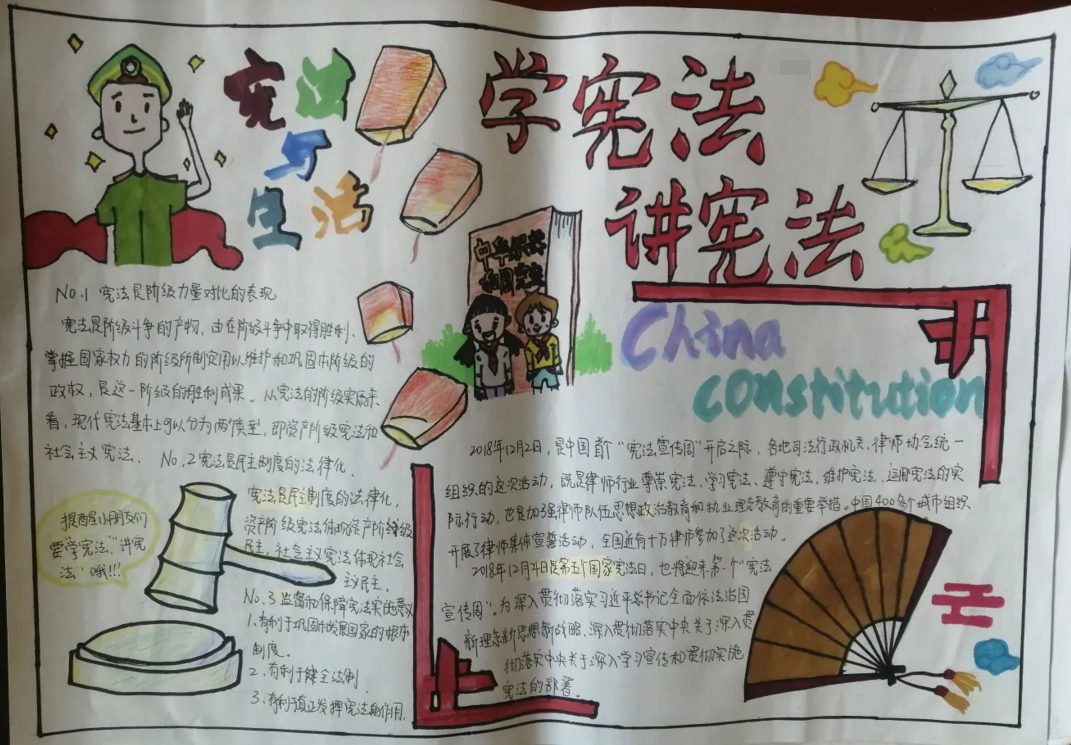 学宪法
讲宪法
宪法
与
生活
中华人民共
和国宪法
China
constitution
No.1 宪法是阶级力量对比的表现
宪法是阶级斗争的产物，由在阶级斗争中取得胜利、
掌握国家权力的阶级所制定用以维护和巩固本阶级的
政权，是这一阶级的胜利成果。从宪法的阶级实质来
看，现代宪法基本上可以分为两个类型，即资产阶级宪法和
社会主义宪法。
No.2 宪法是民主制度的法律化。
宪法是民主制度的法律化，
资产阶级宪法体现资产阶级
民主，社会主义宪法体现社会
主义民主。
No.3 监督和保障宪法实施意义
1.有利于巩固和发展国家的根本
制度。
2.有利于健全法制.
3.有利于真正发挥宪法的作用.
提醒小朋友们
要“学宪法”“讲宪
法”哦!!!
2018年12月2日，是中国首个“宪法宣传周”开启之际，各地司法行政机关、律师协会统一
组织的这次活动，既是律师行业尊崇宪法、学习宪法、遵守宪法、维护宪法、运用宪法的实
际行动，也是加强律师队伍思想政治教育和执业理念教育的重要举措。中国400多个城市组织
开展了律师集体宣誓活动，全国近有十万律师参加了这次活动。
2018年12月4日是第五个国家宪法日，也将迎来第一个“宪法
宣传周”。为深入贯彻落实习近平总书记全面依法治国
新理念新思想新战略、深入贯彻落实中央关于深入贯
彻落实中央关于深入学习宣传和贯彻实施
宪法的部署。